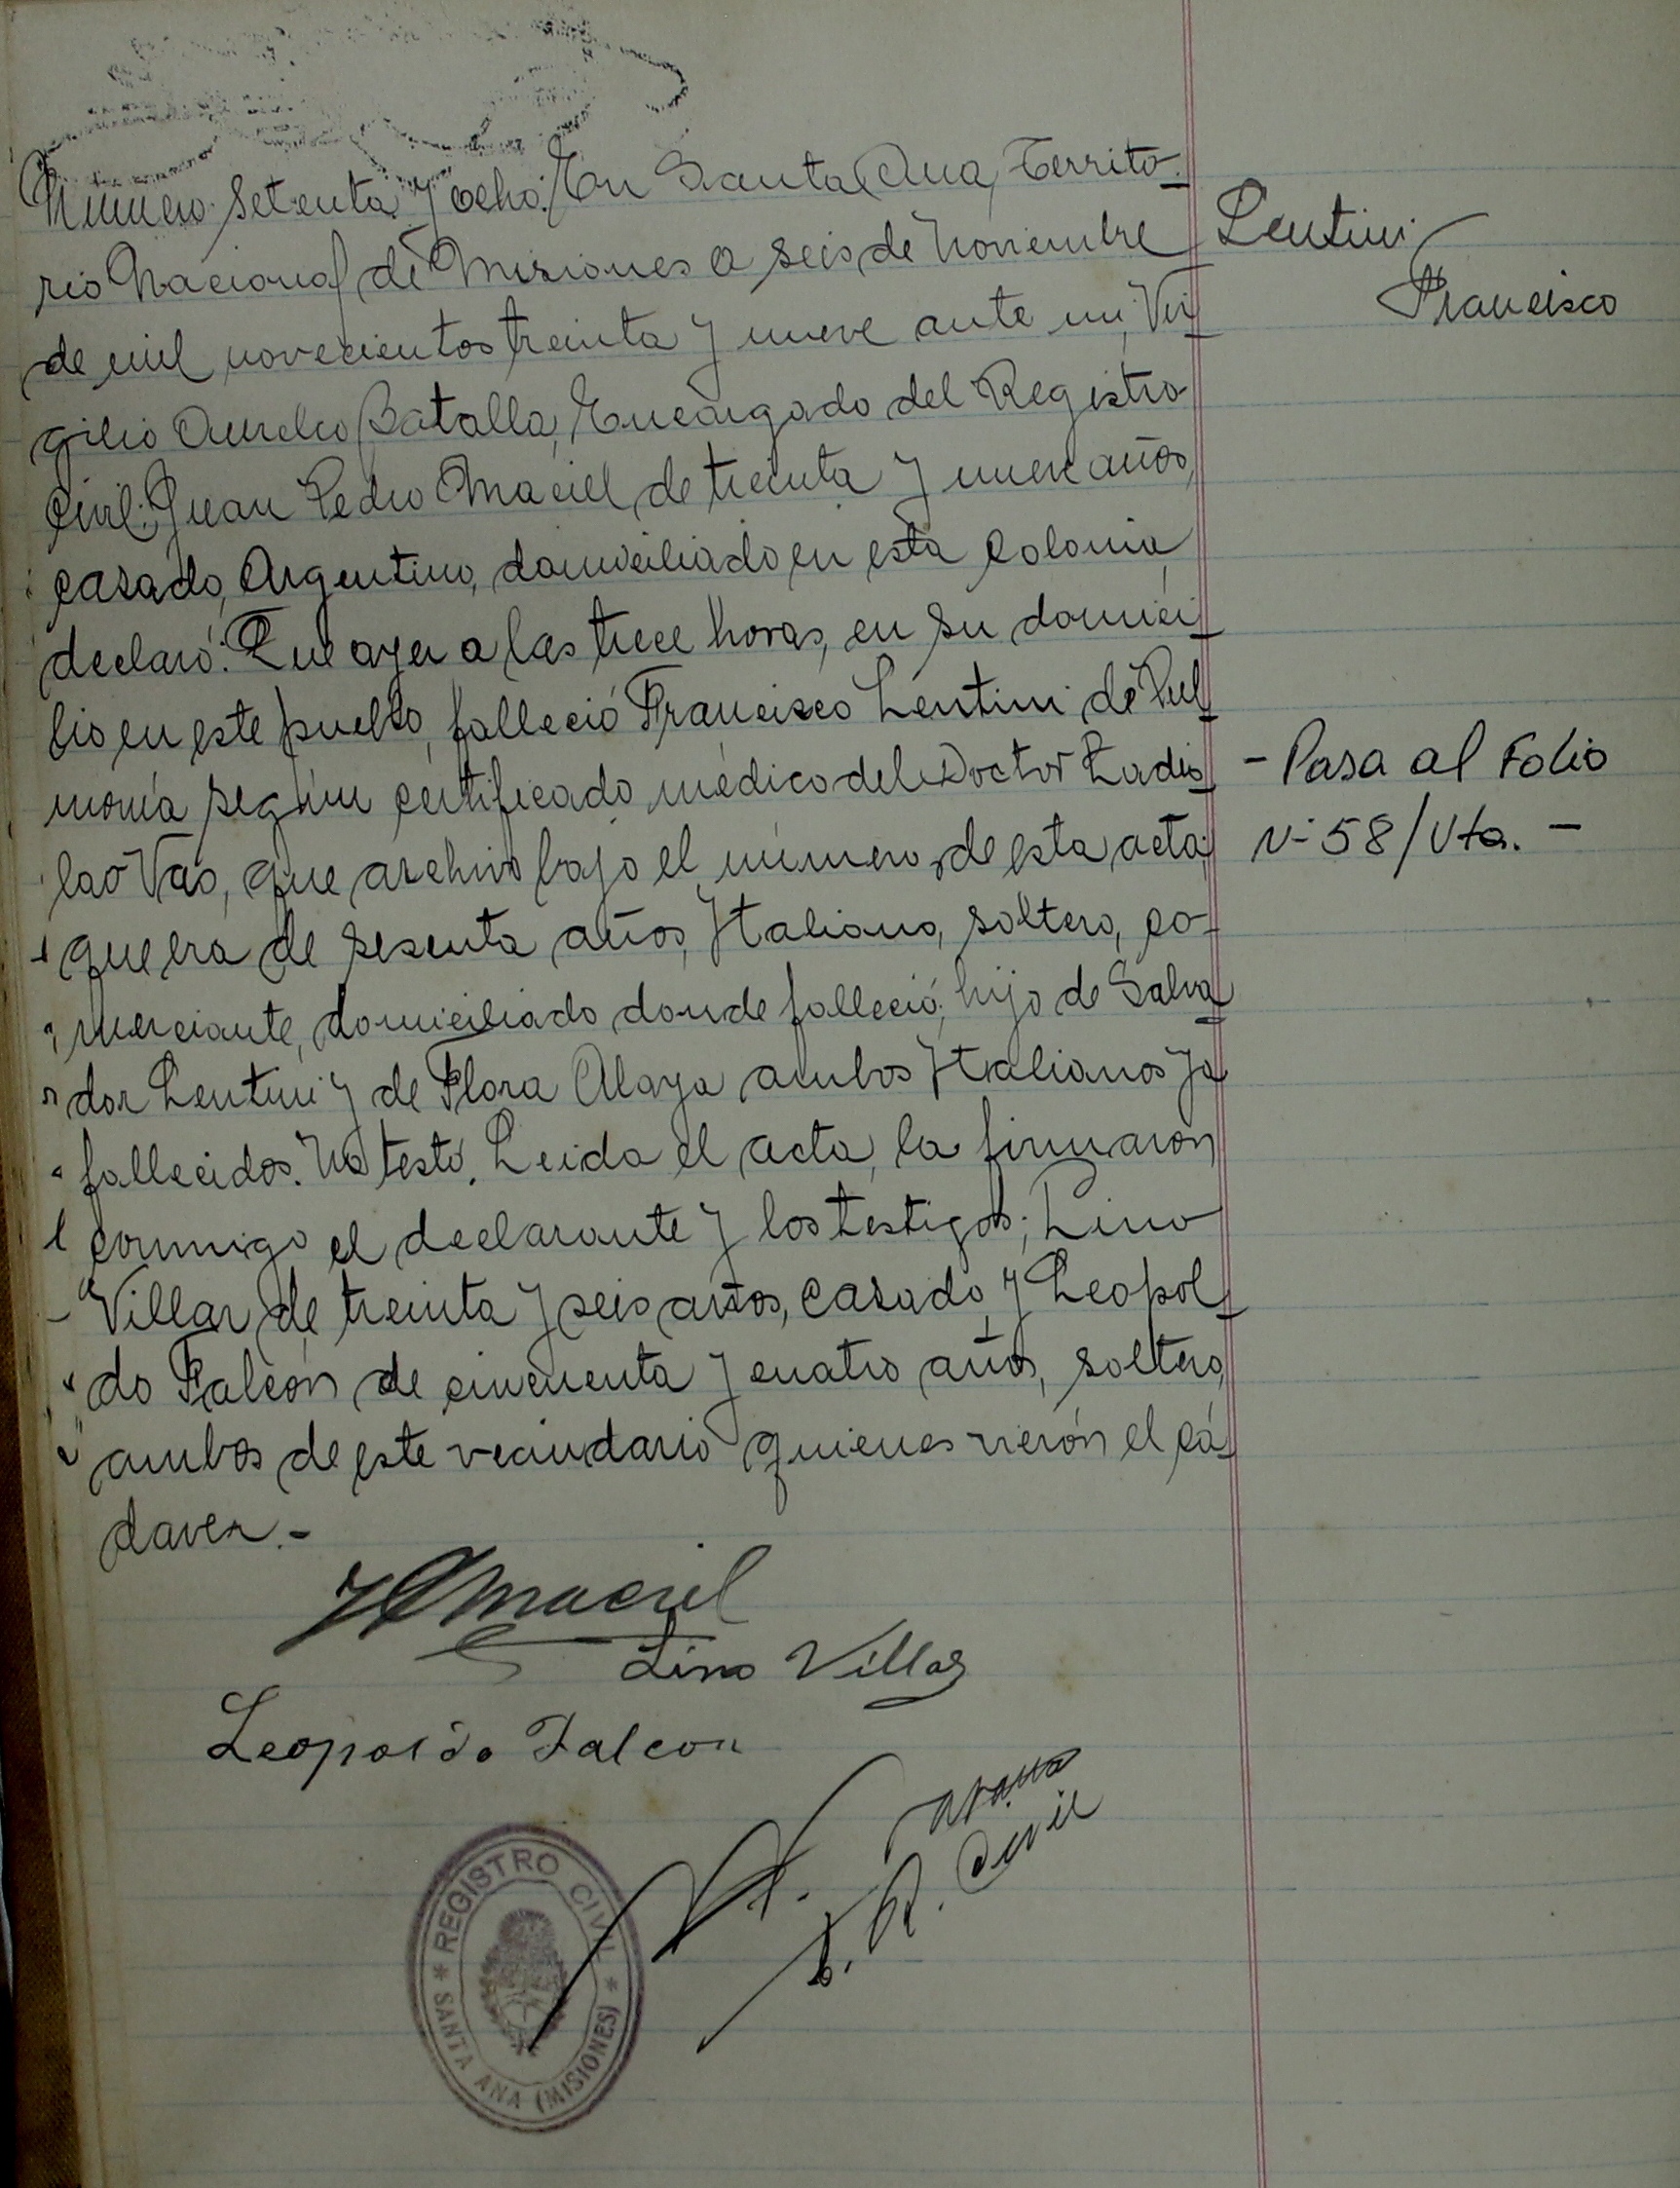 Número setenta y ocho. En Santa Ana, Territo-
rio Nacional de Misiones a seis de Noviembre
de mil novecientos treinta y nueve ante mi, Vir-
gilio Aurelio Batalla, Encargado del Registro
Civil; Juan Pedro Maciel de treinta y nueve años,
casado, Argentino, domiciliado en esta colonia,
declaró: Que ayer a las trece horas, en su domici-
lio en este pueblo, falleció Francisco Lentini de Pul-
monía según certificado médico del Doctor Ladis-
lao Vas, que archivo bajo el número de esta acta;
que era de sesenta años, Italiano, soltero, co-
merciante, domiciliado donde falleció, hijo de Salva-
dor Lentini y de Flora Alaya ambos Italianos ya
fallecidos. No testó. Leida el acta, la firmaron
conmigo el declarante y los testigos; Lino
Villar de treinta y seis años, casado, y Leopol-
do Falcón de cincuenta y cuatro años, soltero,
ambos de este vecindario quienes vierón el ca-
daver.-
Lentini
Francisco
- Pasa al Folio
Nº 58/Vta. -
J P Maciel
Lino Villar
Leopoldo Falcon
E. R. Civil
* REGISTRO CIVIL *
SANTA ANA (MISIONES)